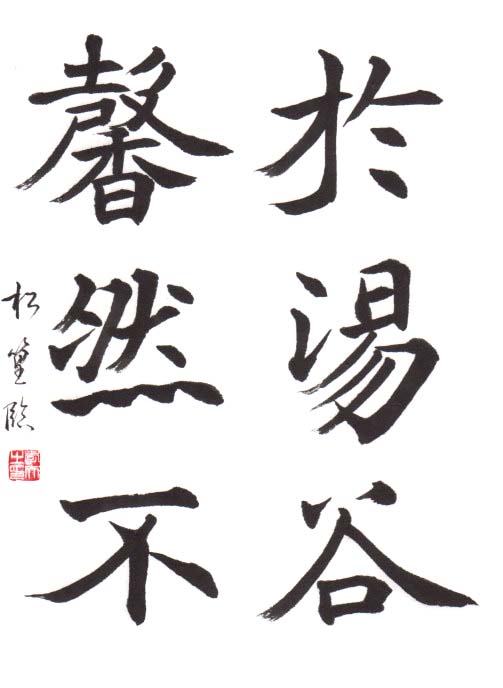 於湯谷
馨然不
松篁臨